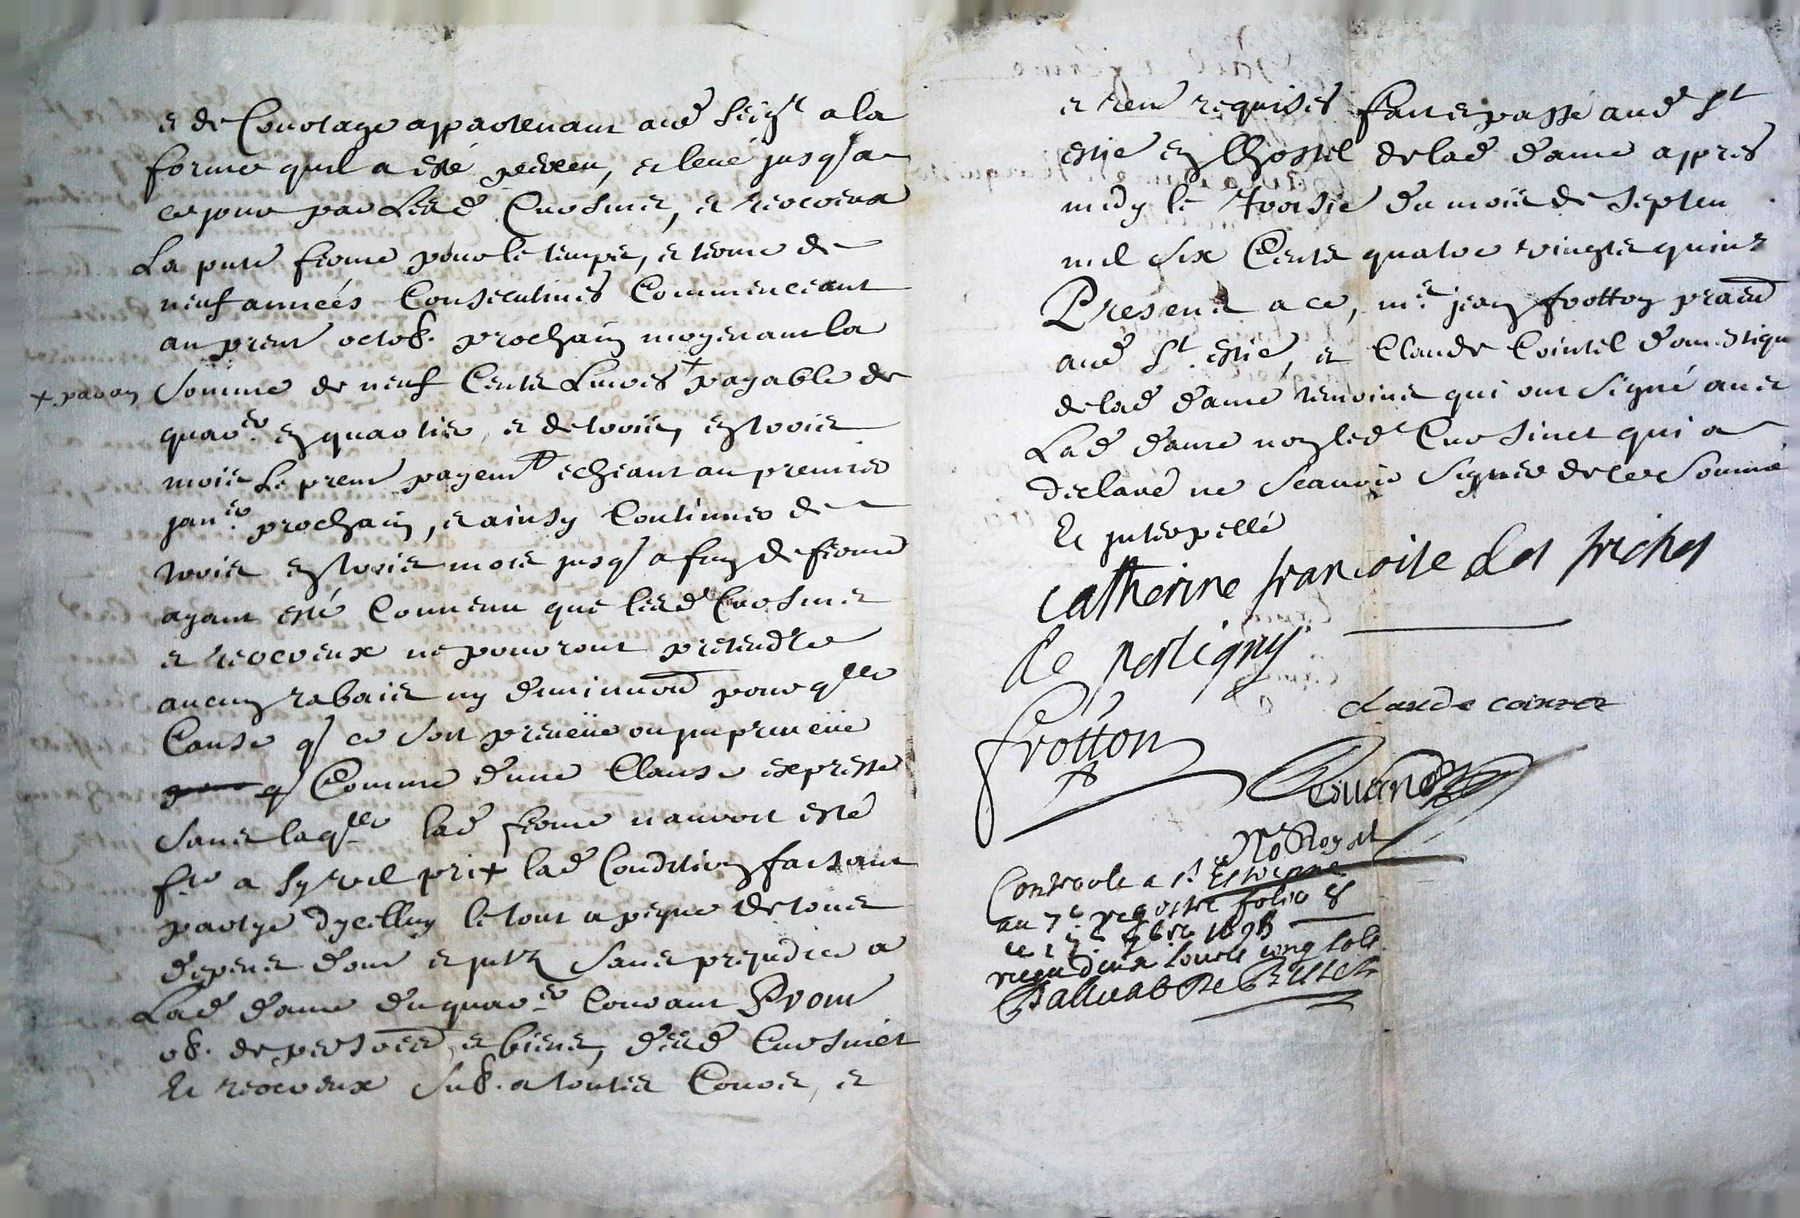 et de Couvtage appartenant aud Seigr a la
forme quil a esté perceu, et levé jusq a
ce jour par Lesd Crosmet, et
La pnte ferme pour le temps, et terme de
neuf années Consecutives Commenceant
au premr octob. prochain moyenant la
+ par an
Somme de neuf Cents Livres + payable de
quarer en quartier, et de trois, en trois
mois Le premr payemt echeant au premier
janer prochain, et ainsy Continuer de
trois en trois mois jusq a fin de ferme
ayant esté Convenu que lesd Crosmet
et ne pourront pretendre
aucun rabais ny diminuon pour qlle
Cause q ce soit preveüe ou impreveüe
q Comme d'une Clause expresse
Sans laqlle lad ferme n'auroit esté
fte a sy vil prix lad Condition faisant
partye d'ycelluy le tout a peyne de tous
depens dom et intz Sans prejudice a
Lad dame du quarer Courant Prom
ob. de persones, et biens, desd Crosmet
Et Sub. a toutes Cours, et
et ren requises fait et passé aud St
estie en lhostel de lad dame appres
midy le troisie du mois de septem
mil six Cents quatre vingts quinz
Presents a ce, mr jean frotton praen
aud St estie, et Claude Cointet domestiqu
de lad dame temoins qui ont signé avec
Lad dame non led Crosmet qui a
declaré ne scavoir signer de ce sommé
Et interpellé
catherine francoise des friches
de
frotton
claude
No Royal
Controole a st Estienne
au 7e registre folio 8
ce 7bre 1695
receu deux sols